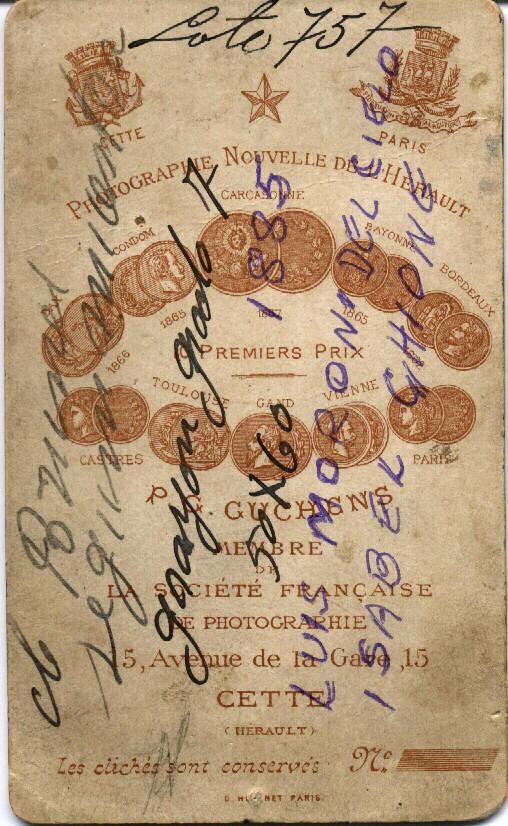 Lote 757
CETTE
PARIS
PHOTOGRAPHIE NOUVELLE DE L'HÉRAULT
CARCASSONNE
CONDOM
BAYONNE
BORDEAUX
1866
1865
1865
PREMIERS PRIX
TOULOUSE
GAND
VIENNE
CASTRES
PARIS
P. G. GUCHENS
MEMBRE
DE
LA SOCIÉTÉ FRANÇAISE
DE PHOTOGRAPHIE
15, Avenue de la Gare, 15
CETTE
(HÉRAULT)
Les clichés sont conservés Nº
PARIS
50X60
1885
LUIS MORONI DEL CIELO
ISABEL GHIONE